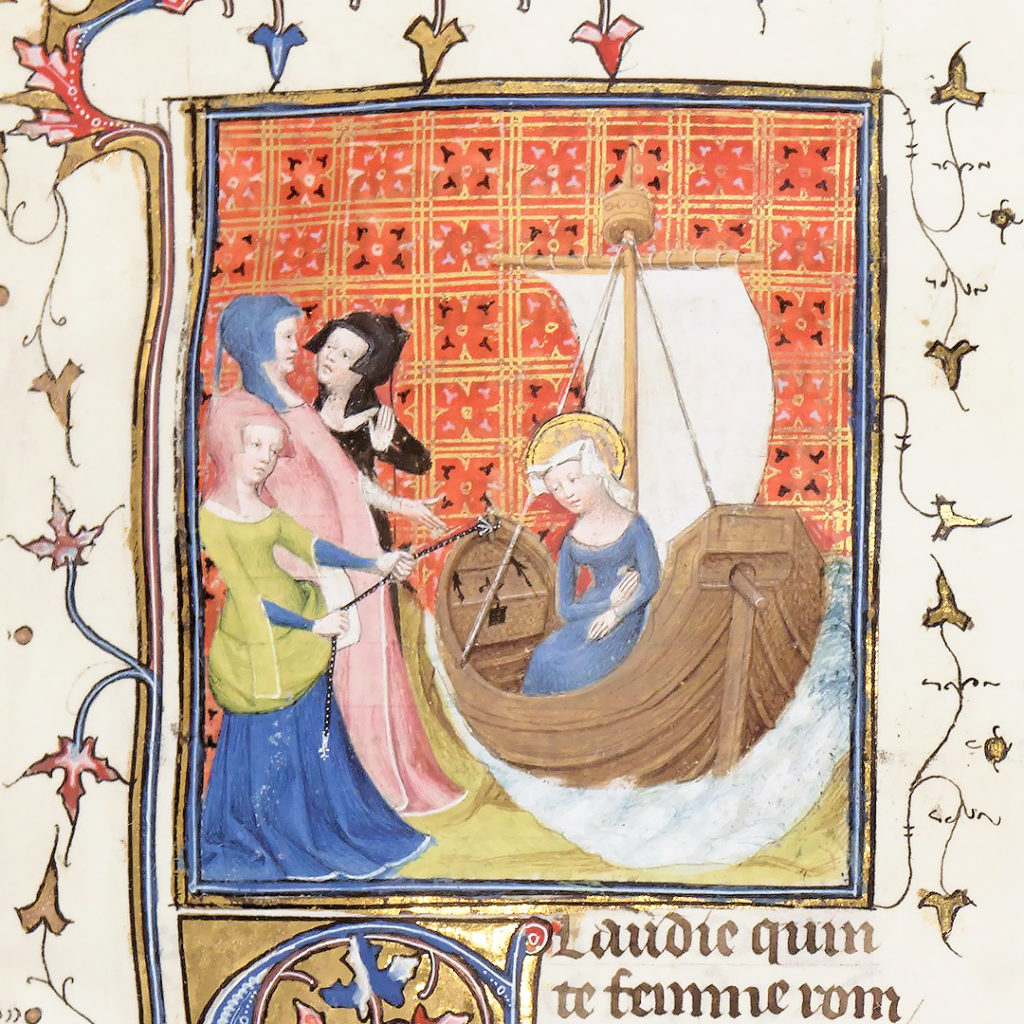 Claudie quin
te femme rom